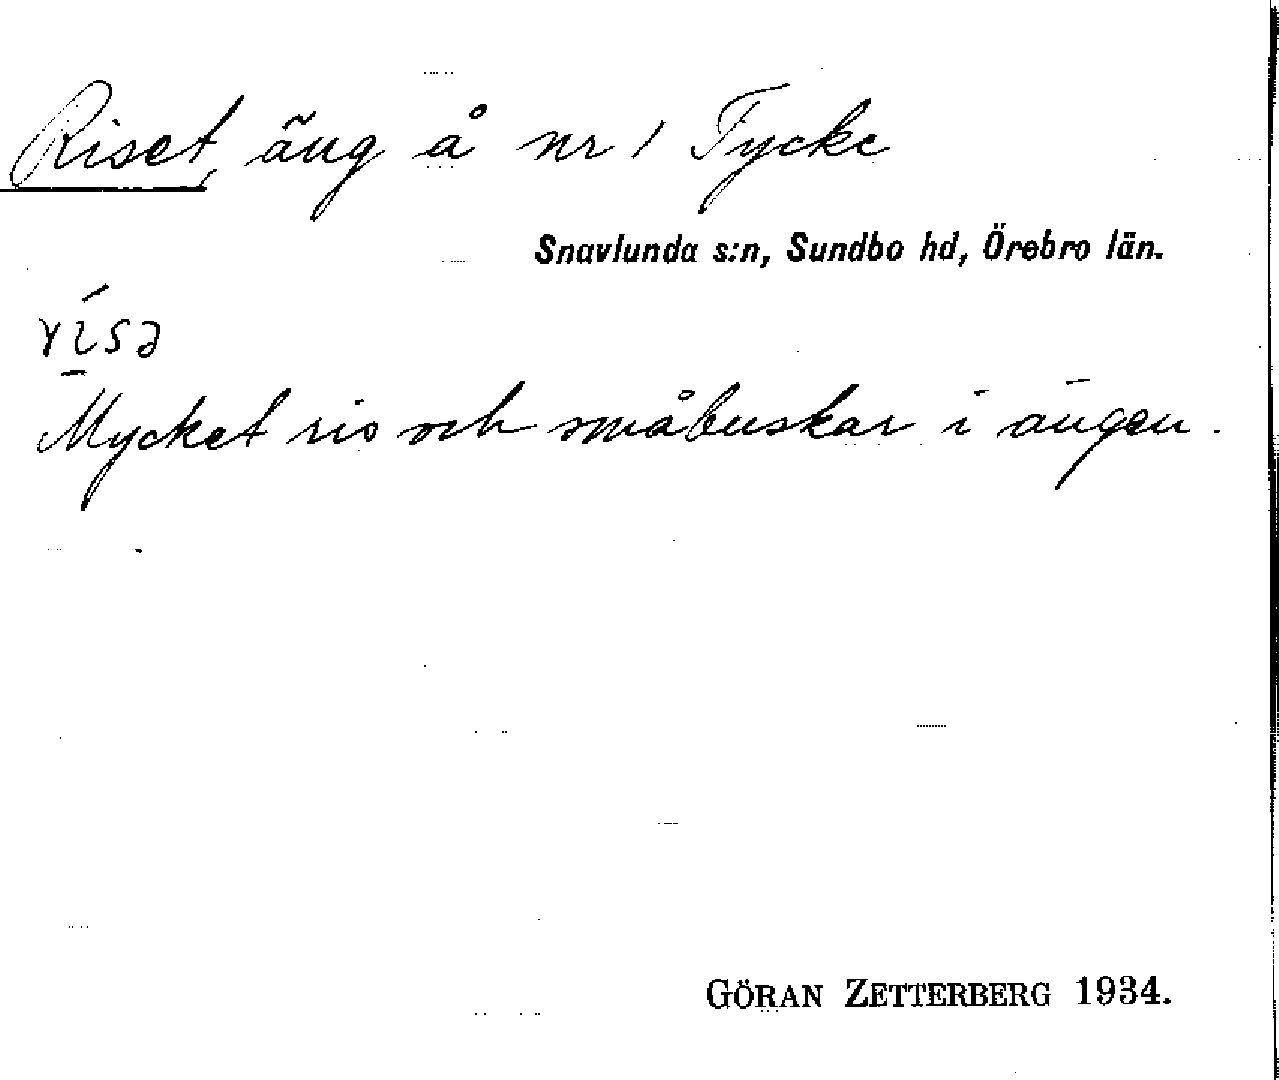 Riset, äng å nr 1 Tycke
Snavlunda s:n, Sundbo hd, Örebro län.
Mycket ris och småbuskar i ängen.
GÖRAN ZETTERBERG 1934.